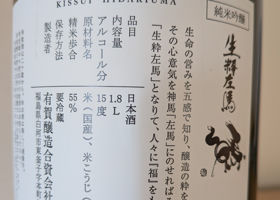 KISSUI HIDARIUMA
純米吟醸
生粋左馬
生命の営みを五感で知り、醸造の粋を
その心意気を神馬「左馬」にのせれば
「生粋左馬」となりて、人々に『福』をも
品目 日本酒
内容量 1.8L
アルコール分 15度
原材料名 米（国産）、米こうじ（
精米歩合 55%
保存方法 要冷蔵
製造者 有賀醸造合資会社
福島県白河市東釜子字本町